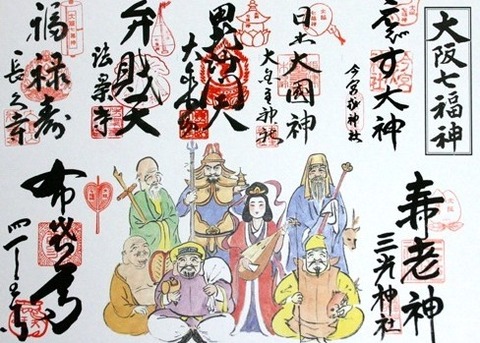 大阪七福神
ゑびす大神
今宮戎神社
日出大國神
大国主神社
毘沙門天
大乗坊
弁財天
法案寺
福禄寿
長久寺
寿老神
三光神社
布袋尊
四天王寺